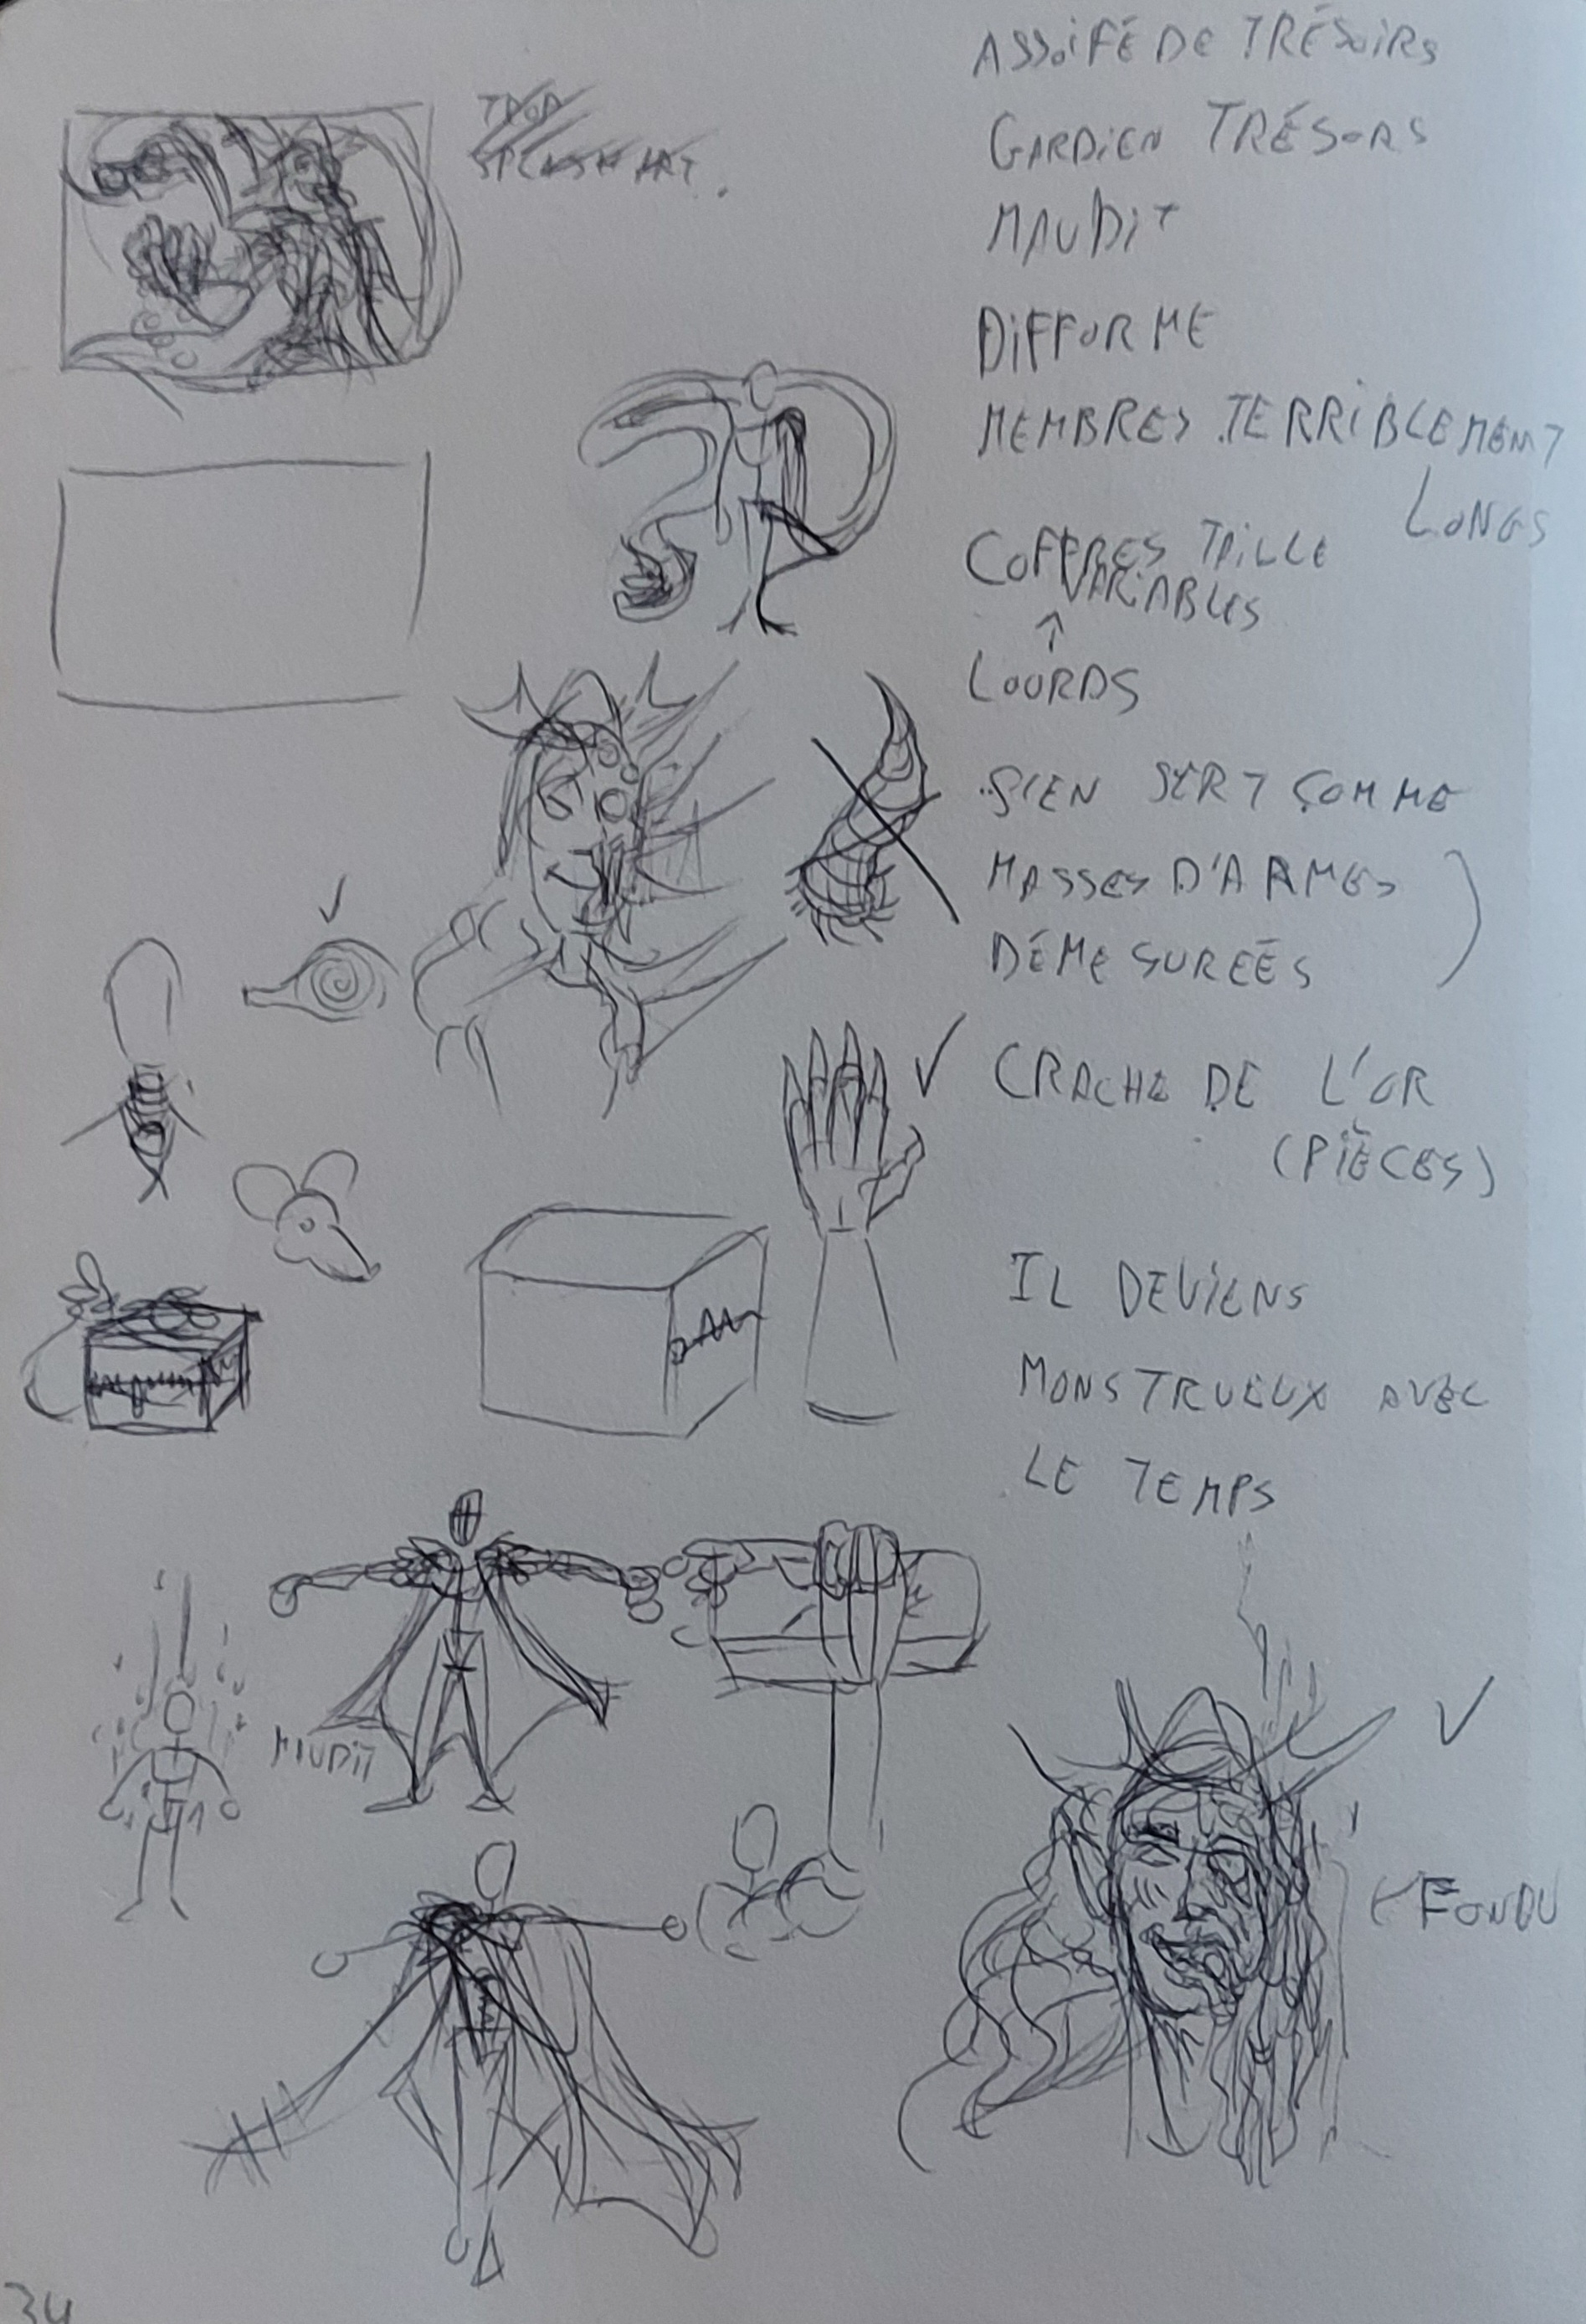 TROP
SPLASH ART.
ASSOiFÉ DE TRÉSOiRS
GARDiEN TRÉSORS
MAUDiT
DiFFORME
MEMBRES TERRiBLEMENT
LONGS
COFFRES TAiLLE
VARiABLES
↑
LOURDS
SERT COMME
MASSES D'ARMES
DÉMESURÉES
CRACHE DE L'OR
(PiÈCES)
IL DEViENS
MONSTRUEUX AVEC
LE TEMPS
MAUDiT
FONDU
34